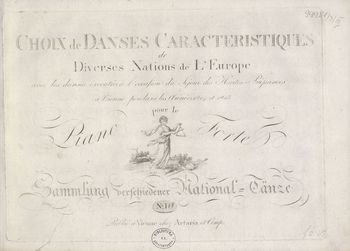 CHOIX de DANSES CARACTERISTIQUES
de
Diverses Nations de L'Europe
avec les danses executées à l'occasion du Séjour des Hautes Puissances
à Vienne pendant les Années 1814 et 1815
pour le
Piano Forte
Sammlung verschiedener National=Tänze
No. 1
Publié à Vienne chez Artaria et Comp.